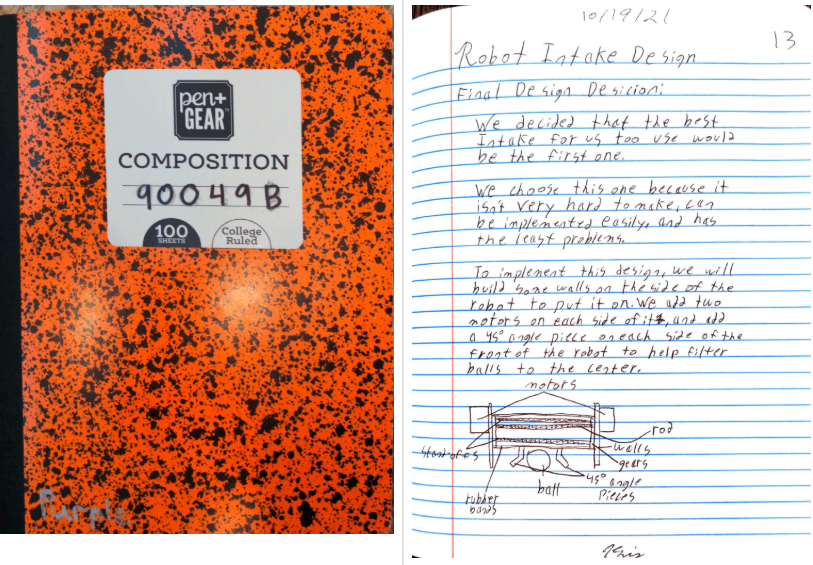 pen+
GEAR™
COMPOSITION
90049B
100
SHEETS
College
Ruled
Purple
10/19/21
13
Robot Intake Design
Final Design Desicion:
We decided that the best
Intake for us too use would
be the first one.
We choose this one because it
isn't very hard to make, can
be implemented easily, and has
the least problems.
To implement this design, we will
build some walls on the side of the
robot to put it on. We add two
motors on each side of it, and add
a 45° angle piece on each side of the
front of the robot to help filter
balls to the center.
motors
rod
standoffs
walls
gears
45° angle
Pieces
ball
rubber
bands